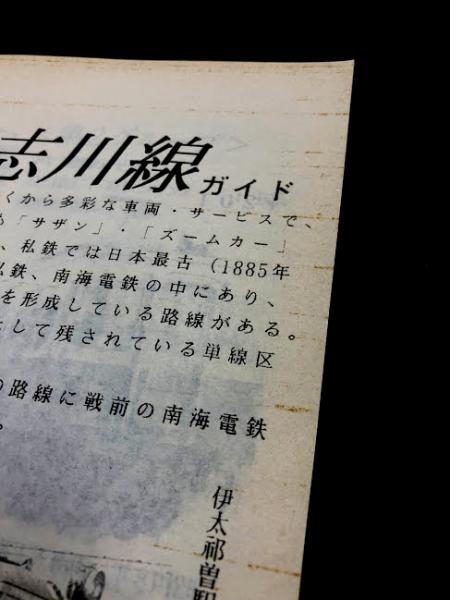 志川線ガイド
くから多彩な車両・サービスで、
「サザン」・「ズームカー」
、私鉄では日本最古（1885年
鉄、南海電鉄の中にあり、
を形成している路線がある。
して残されている単線区
路線に戦前の南海電鉄
。
伊太祁曽駅